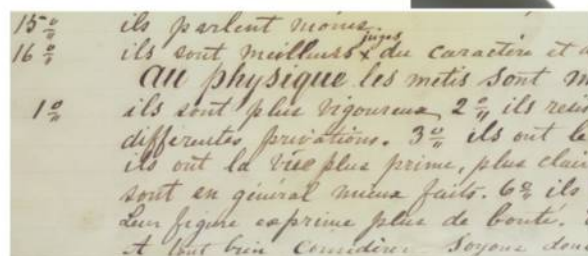 15° ils parlent moins.
16° ils sont meilleurs juges du caractère et d
au physique les metis sont m
1° ils sont plus vigoureux, 2° ils rési
differentes privations. 3° ils ont le
ils ont la vue plus prime, plus clai
sont en général mieux faits. 6° ils
Leur figure exprime plus de bonté.
A tout bien considérer. Soyons donc